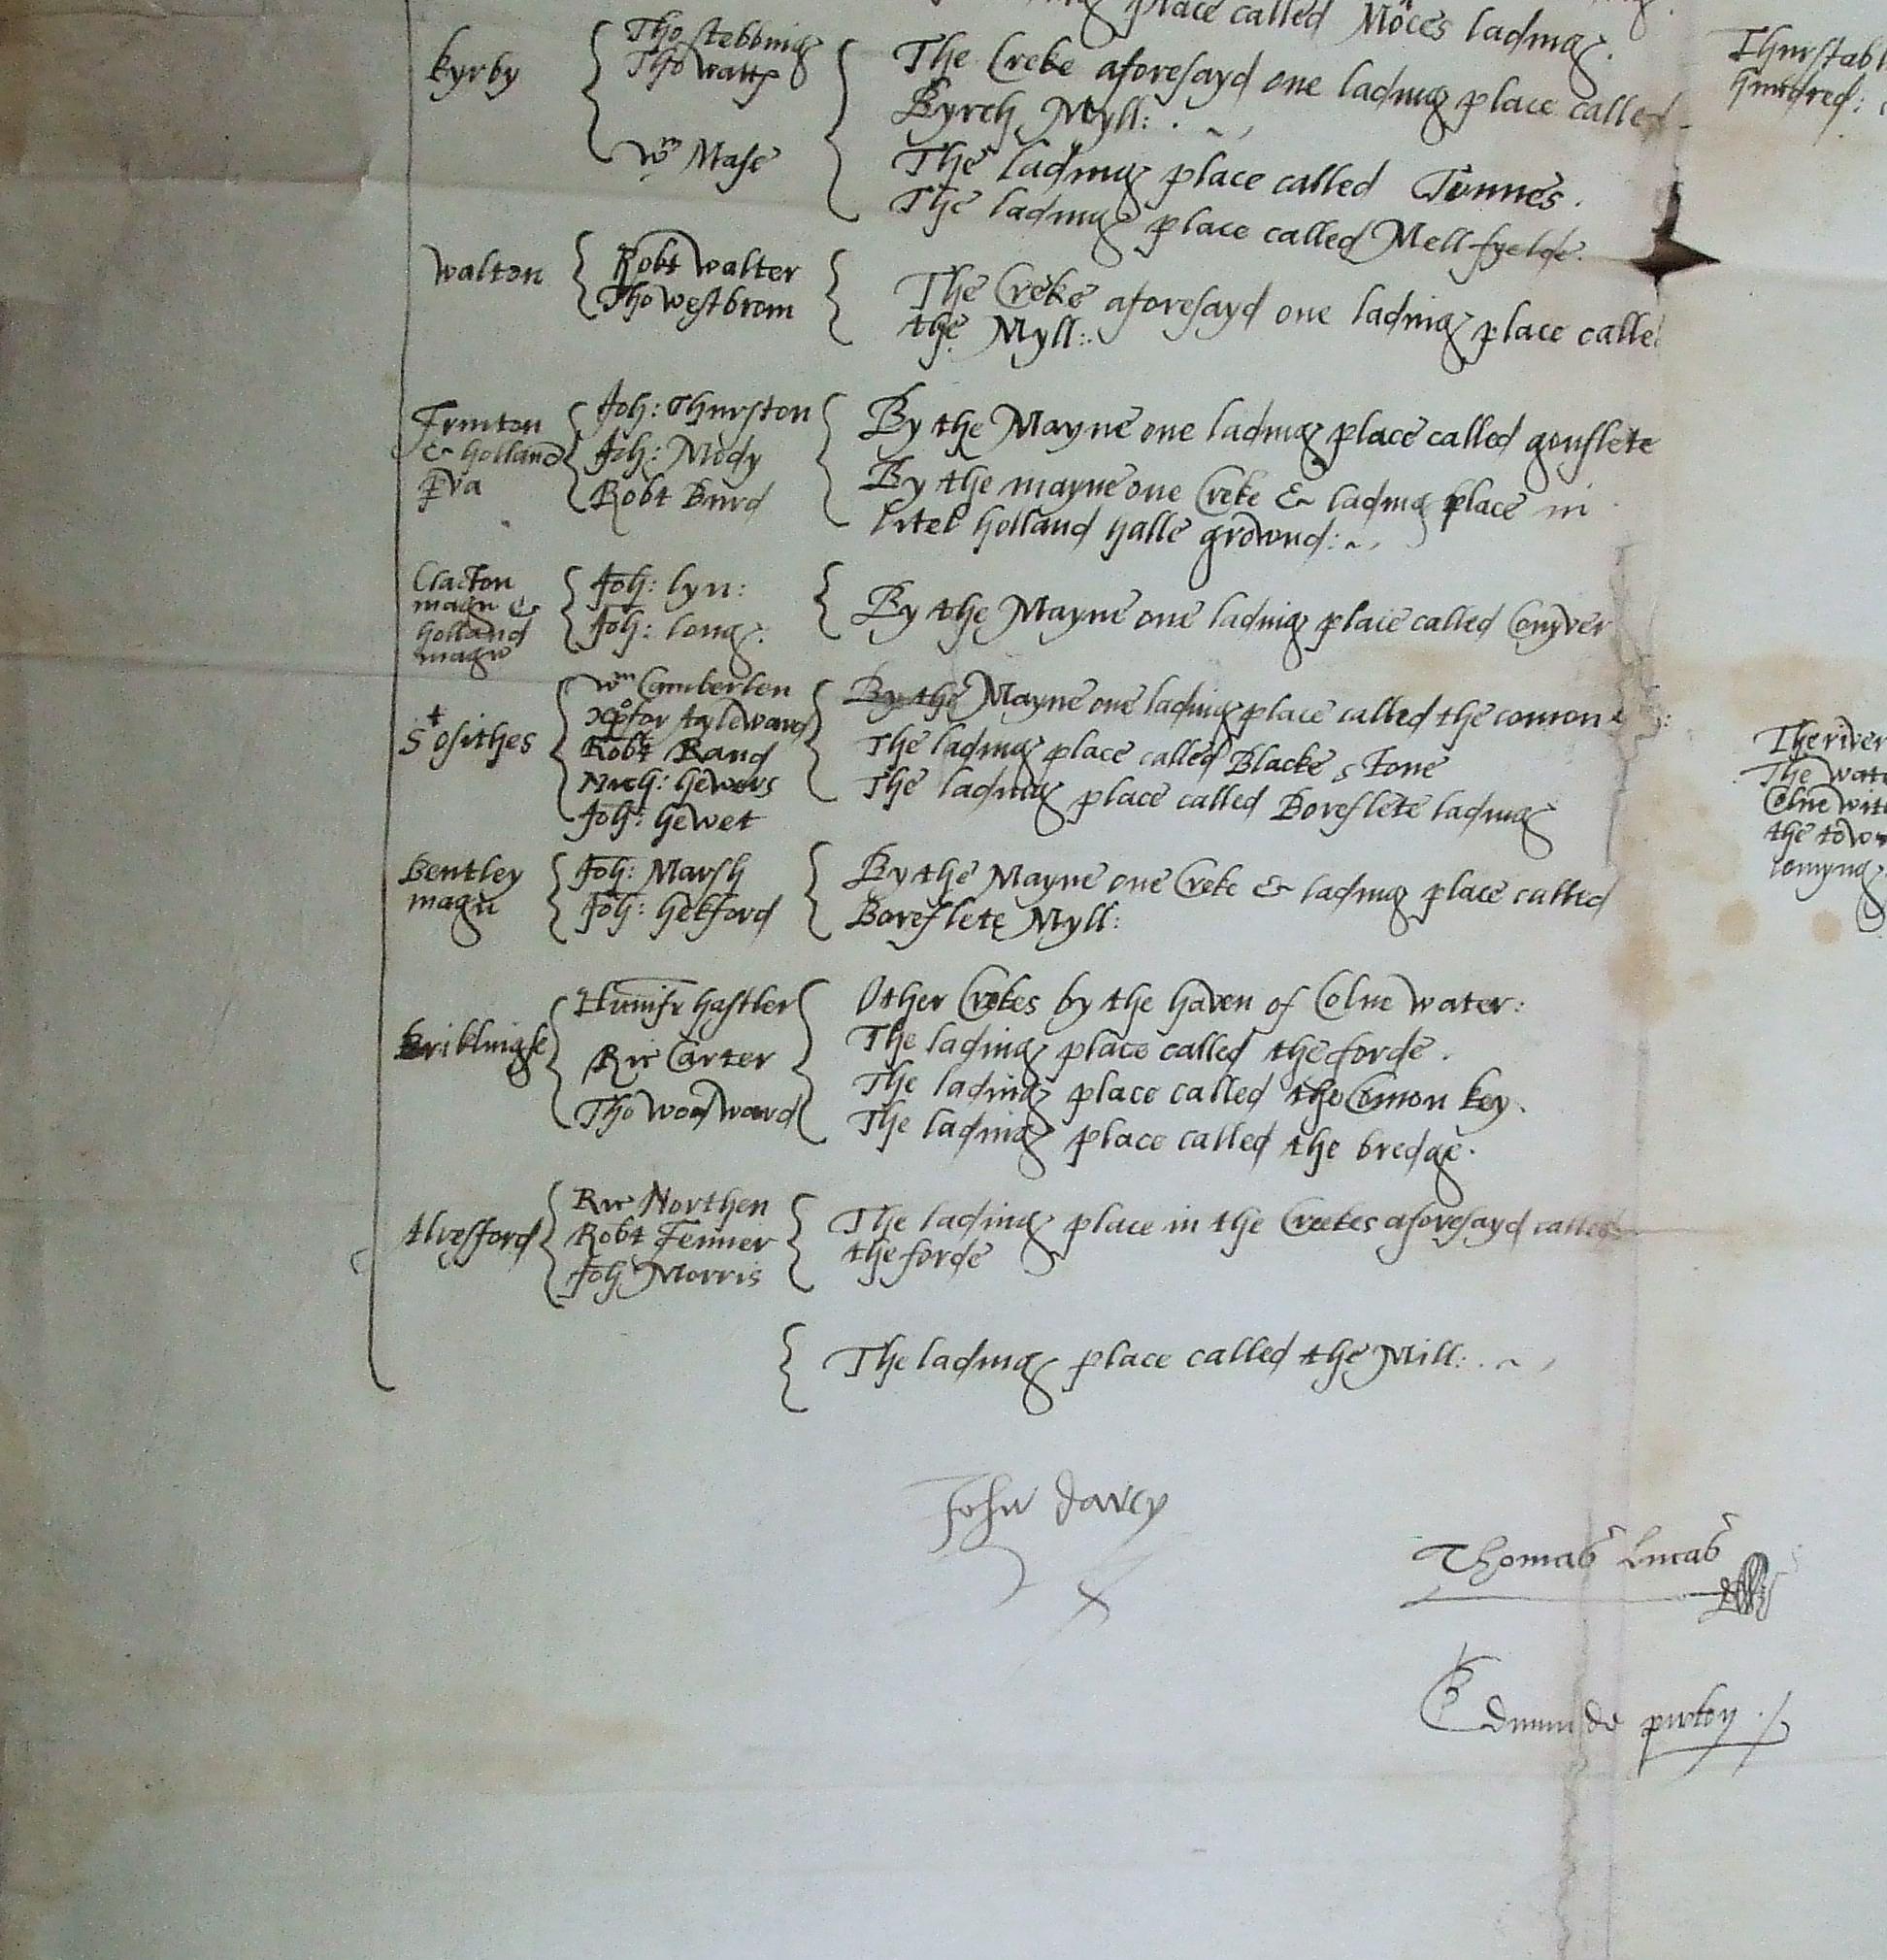 place called Moces lading.
kyrby
Tho stebbing
Tho watts
Wm Mase
The Creke aforesayd one lading place called
Byrch Myll:
The lading place called Tunnes.
The lading place called Mell fyelde.
Walton
Robt Walter
Tho westbrom
The Creke aforesayd one lading place calle
the Myll:
Frinton
& holland
pva
Joh: Thurston
Joh: Mody
Robt Burd
By the Mayne one lading place called gonflete
By the mayne one Creke & lading place in
litel holland halle grownd:
Clacton
magn &
holland
magn
Joh: lyn:
Joh: long.
By the Mayne one lading place called Conyver
St osithes
Wm Camberlen
xpofor Ayleward
Robt Rand
Nich: hewers
Joh: hewet
By the Mayne one lading place called the comon
The lading place called Blacke stone
The lading place called Boreflete lading
Bentley
magn
Joh: Marsh
Joh: hekford
By the Mayne one Creke & lading place called
Boreflete Myll:
Briklingse
Humfr hastler
Ric Carter
Tho woodward
Other Crekes by the haven of Colne water:
The lading place called the forde.
The lading place called the Comon key.
The lading place called the bredge.
Alresford
Ric Northen
Robt Fenner
Joh Morris
The lading place in the Creekes aforesayd called
the forde
The lading place called the Mill:
John darcy
Thomas Lucas
Edmunde pirton
Thurstabl
hundred:
The river
The wate
Colne wit
the tow
comyng